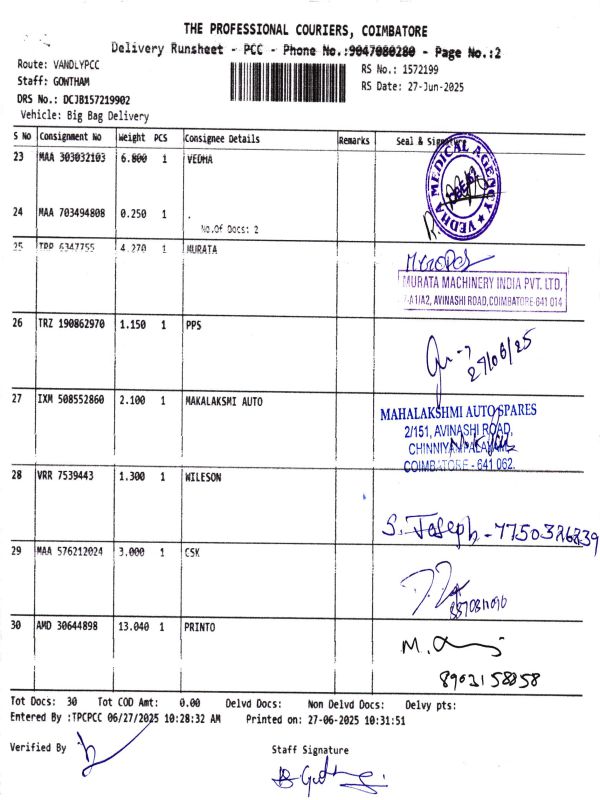 THE PROFESSIONAL COURIERS, COIMBATORE
Delivery Runsheet - PCC - Phone No.:9047080280 - Page No.:2
Route: VANDLYPCC
RS No.: 1572199
Staff: GOWTHAM
RS Date: 27-Jun-2025
DRS No.: DCJB157219902
Vehicle: Big Bag Delivery
S No Consignment No Weight PCS Consignee Details Remarks Seal & Signature
23 MAA 303032103 6.800 1 VEDHA
VEDHA MEDICAL AGENCY
24 MAA 703494808 0.250 1 .
No.Of Docs: 2
25 TPP 6347755 4.270 1 MURATA
MURATA MACHINERY INDIA PVT. LTD,
7-A1/A2, AVINASHI ROAD, COIMBATORE-641 014
26 TRZ 190862970 1.150 1 PPS
27/06/25
27 IXM 508552860 2.100 1 MAKALAKSMI AUTO
MAHALAKSHMI AUTO SPARES
2/151, AVINASHI ROAD,
CHINNIYAMPALAYAM,
COIMBATORE - 641 062.
28 VRR 7539443 1.300 1 WILESON
S. Joseph - 7750326239
29 MAA 576212024 3.000 1 CSK
30 AMD 30644898 13.040 1 PRINTO
M.
8903158058
Tot Docs: 30 Tot COD Amt: 0.00 Delvd Docs: Non Delvd Docs: Delvy pts:
Entered By :TPCPCC 06/27/2025 10:28:32 AM Printed on: 27-06-2025 10:31:51
Verified By
Staff Signature